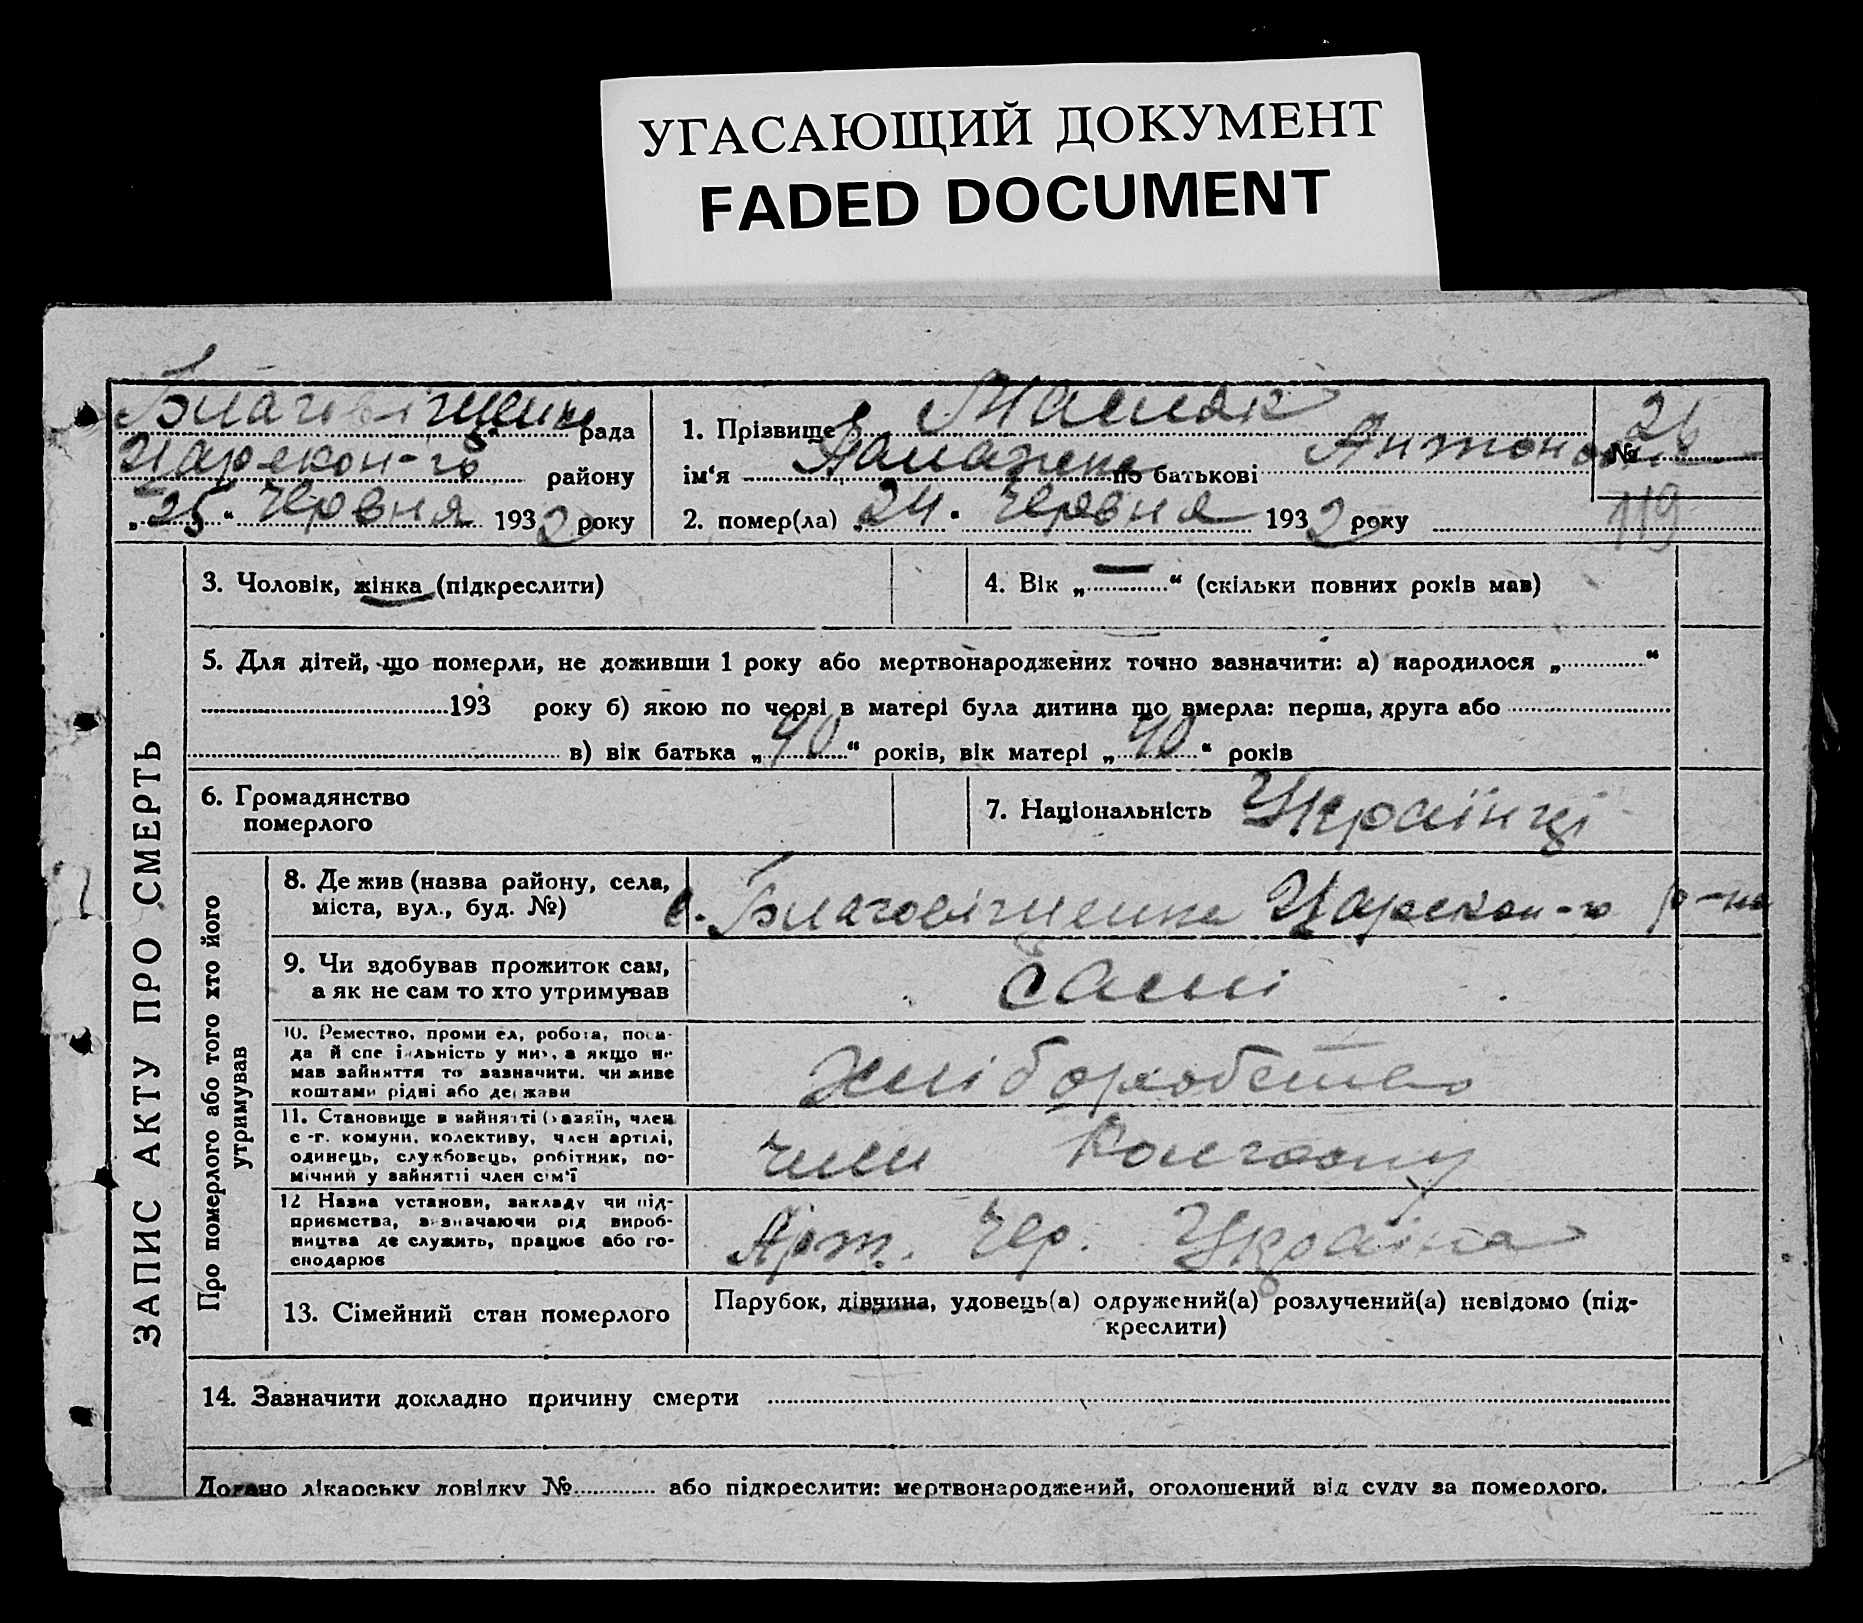 УГАСАЮЩИЙ ДОКУМЕНТ
FADED DOCUMENT
рада
району
„25“ Червня 1932 року
1. Прізвище Масляк
ім‘я по батькові
2. помер(ла) 24 Червня 1932 року
№ 26
119
ЗАПИС АКТУ ПРО СМЕРТЬ
3. Чоловік, жінка (підкреслити)
4. Вік „ — “ (скільки повних років мав)
5. Для дітей, що померли, не доживши 1 року або мертвонароджених точно зазначити: а) народилося „ “
193 року б) якою по черзі в матері була дитина що вмерла: перша, друга або
в) вік батька „40“ років, вік матері „40“ років
6. Громадянство
померлого
7. Національність Українці
Про померлого або того хто його
утримував
8. Де жив (назва району, села,
міста, вул., буд. №)
с. Благовіщенка Царекон-го р-на
9. Чи здобував прожиток сам,
а як не сам то хто утримував
самі
10. Ремество, проми ел, робота, поса-
да й спе іальність у них, а якщо не
мав зайняття то зазначити. чи живе
коштами рідні або держави
Хліборобство
11. Становище в зайнятті (хазяїн, член
с-г. комуни, колективу, член артілі,
одинець, службовець, робітник, по-
мічний у зайнятті член сім‘ї
член Колгоспу
12 Назва установи, закладу чи під-
приємства, визначаючи рід вироб-
ництва де служить, працює або го-
сподарює
Арт. Чер. Україна
13. Сімейний стан померлого
Парубок, дівчина, удовець(а) одружений(а) розлучений(а) невідомо (під-
креслити)
14. Зазначити докладно причину смерти
Додано лікарську довідку № або підкреслити: мертвонароджений, оголошений від суду за померлого.